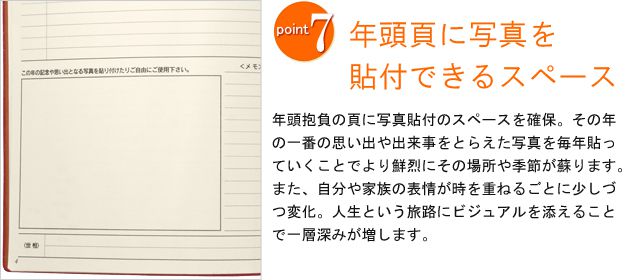 point 7
年頭頁に写真を
貼付できるスペース
この年の記念や思い出となる写真を貼り付けたりご自由にご使用下さい。
<メモ
年頭抱負の頁に写真貼付のスペースを確保。その年
の一番の思い出や出来事をとらえた写真を毎年貼っ
ていくことでより鮮烈にその場所や季節が蘇ります。
また、自分や家族の表情が時を重ねるごとに少しづ
つ変化。人生という旅路にビジュアルを添えること
で一層深みが増します。
(世相)
4